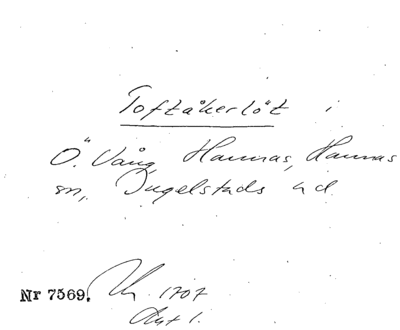 Toftåkerlöt i
Ö. Vång, Hannas, Hannas
sn, Ingelstads hd.
Nr 7569. 1707
Akt 1.